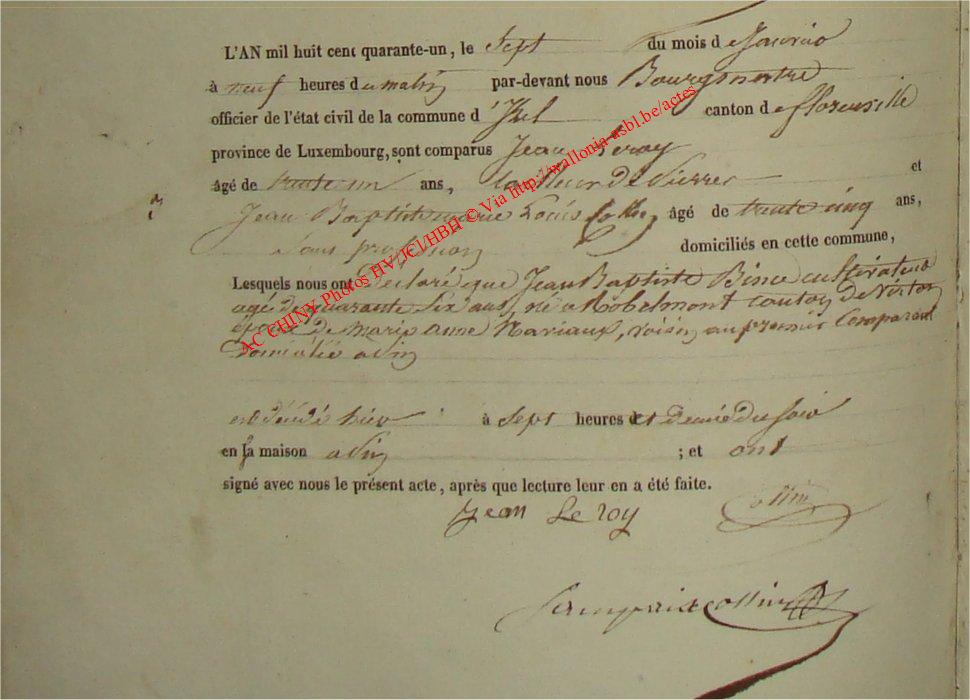 L'AN mil huit cent quarante-un, le Sept du mois de Janvier
à neuf heures du matin par-devant nous Bourgmestre
officier de l'état civil de la commune d'Izel canton de florenville
province de Luxembourg, sont comparus Jean Leroy
âgé de trente un ans, tailleur de Pierres et
Jean Baptiste marie Louis Collin âgé de trente cinq ans,
Sans profession domiciliés en cette commune,
Lesquels nous ont Déclaré que Jean Baptiste cultivateur
agé de quarante Six ans, né a Robelmont canton de Virton
époux de marie anne Mariaux, voisin au premier Comparant
Domicilié a
est décédé hier à Sept heures et demie du Soir
en sa maison a ; et ont
signé avec nous le présent acte, après que lecture leur en a été faite.
Jean Le roy
Collin
collin
AC CHINY Photos HV/JCl/HBH © Via http://wallonia-asbl.be/actes